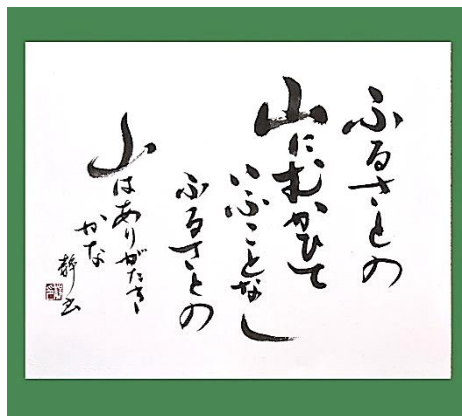 ふるさとの
山にむかひて
いふことなし
ふるさとの
山はありがたき
かな
静